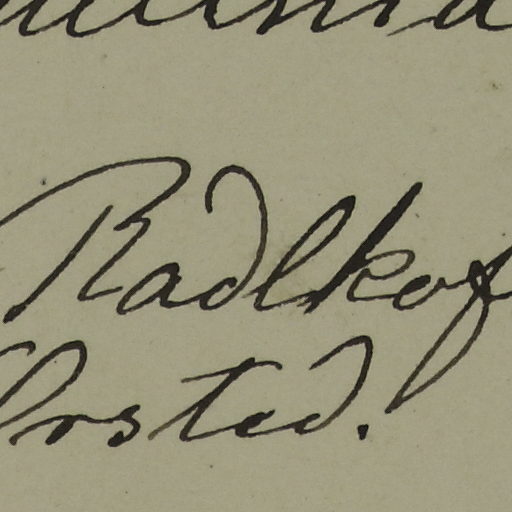 Radlkof
Orsted.